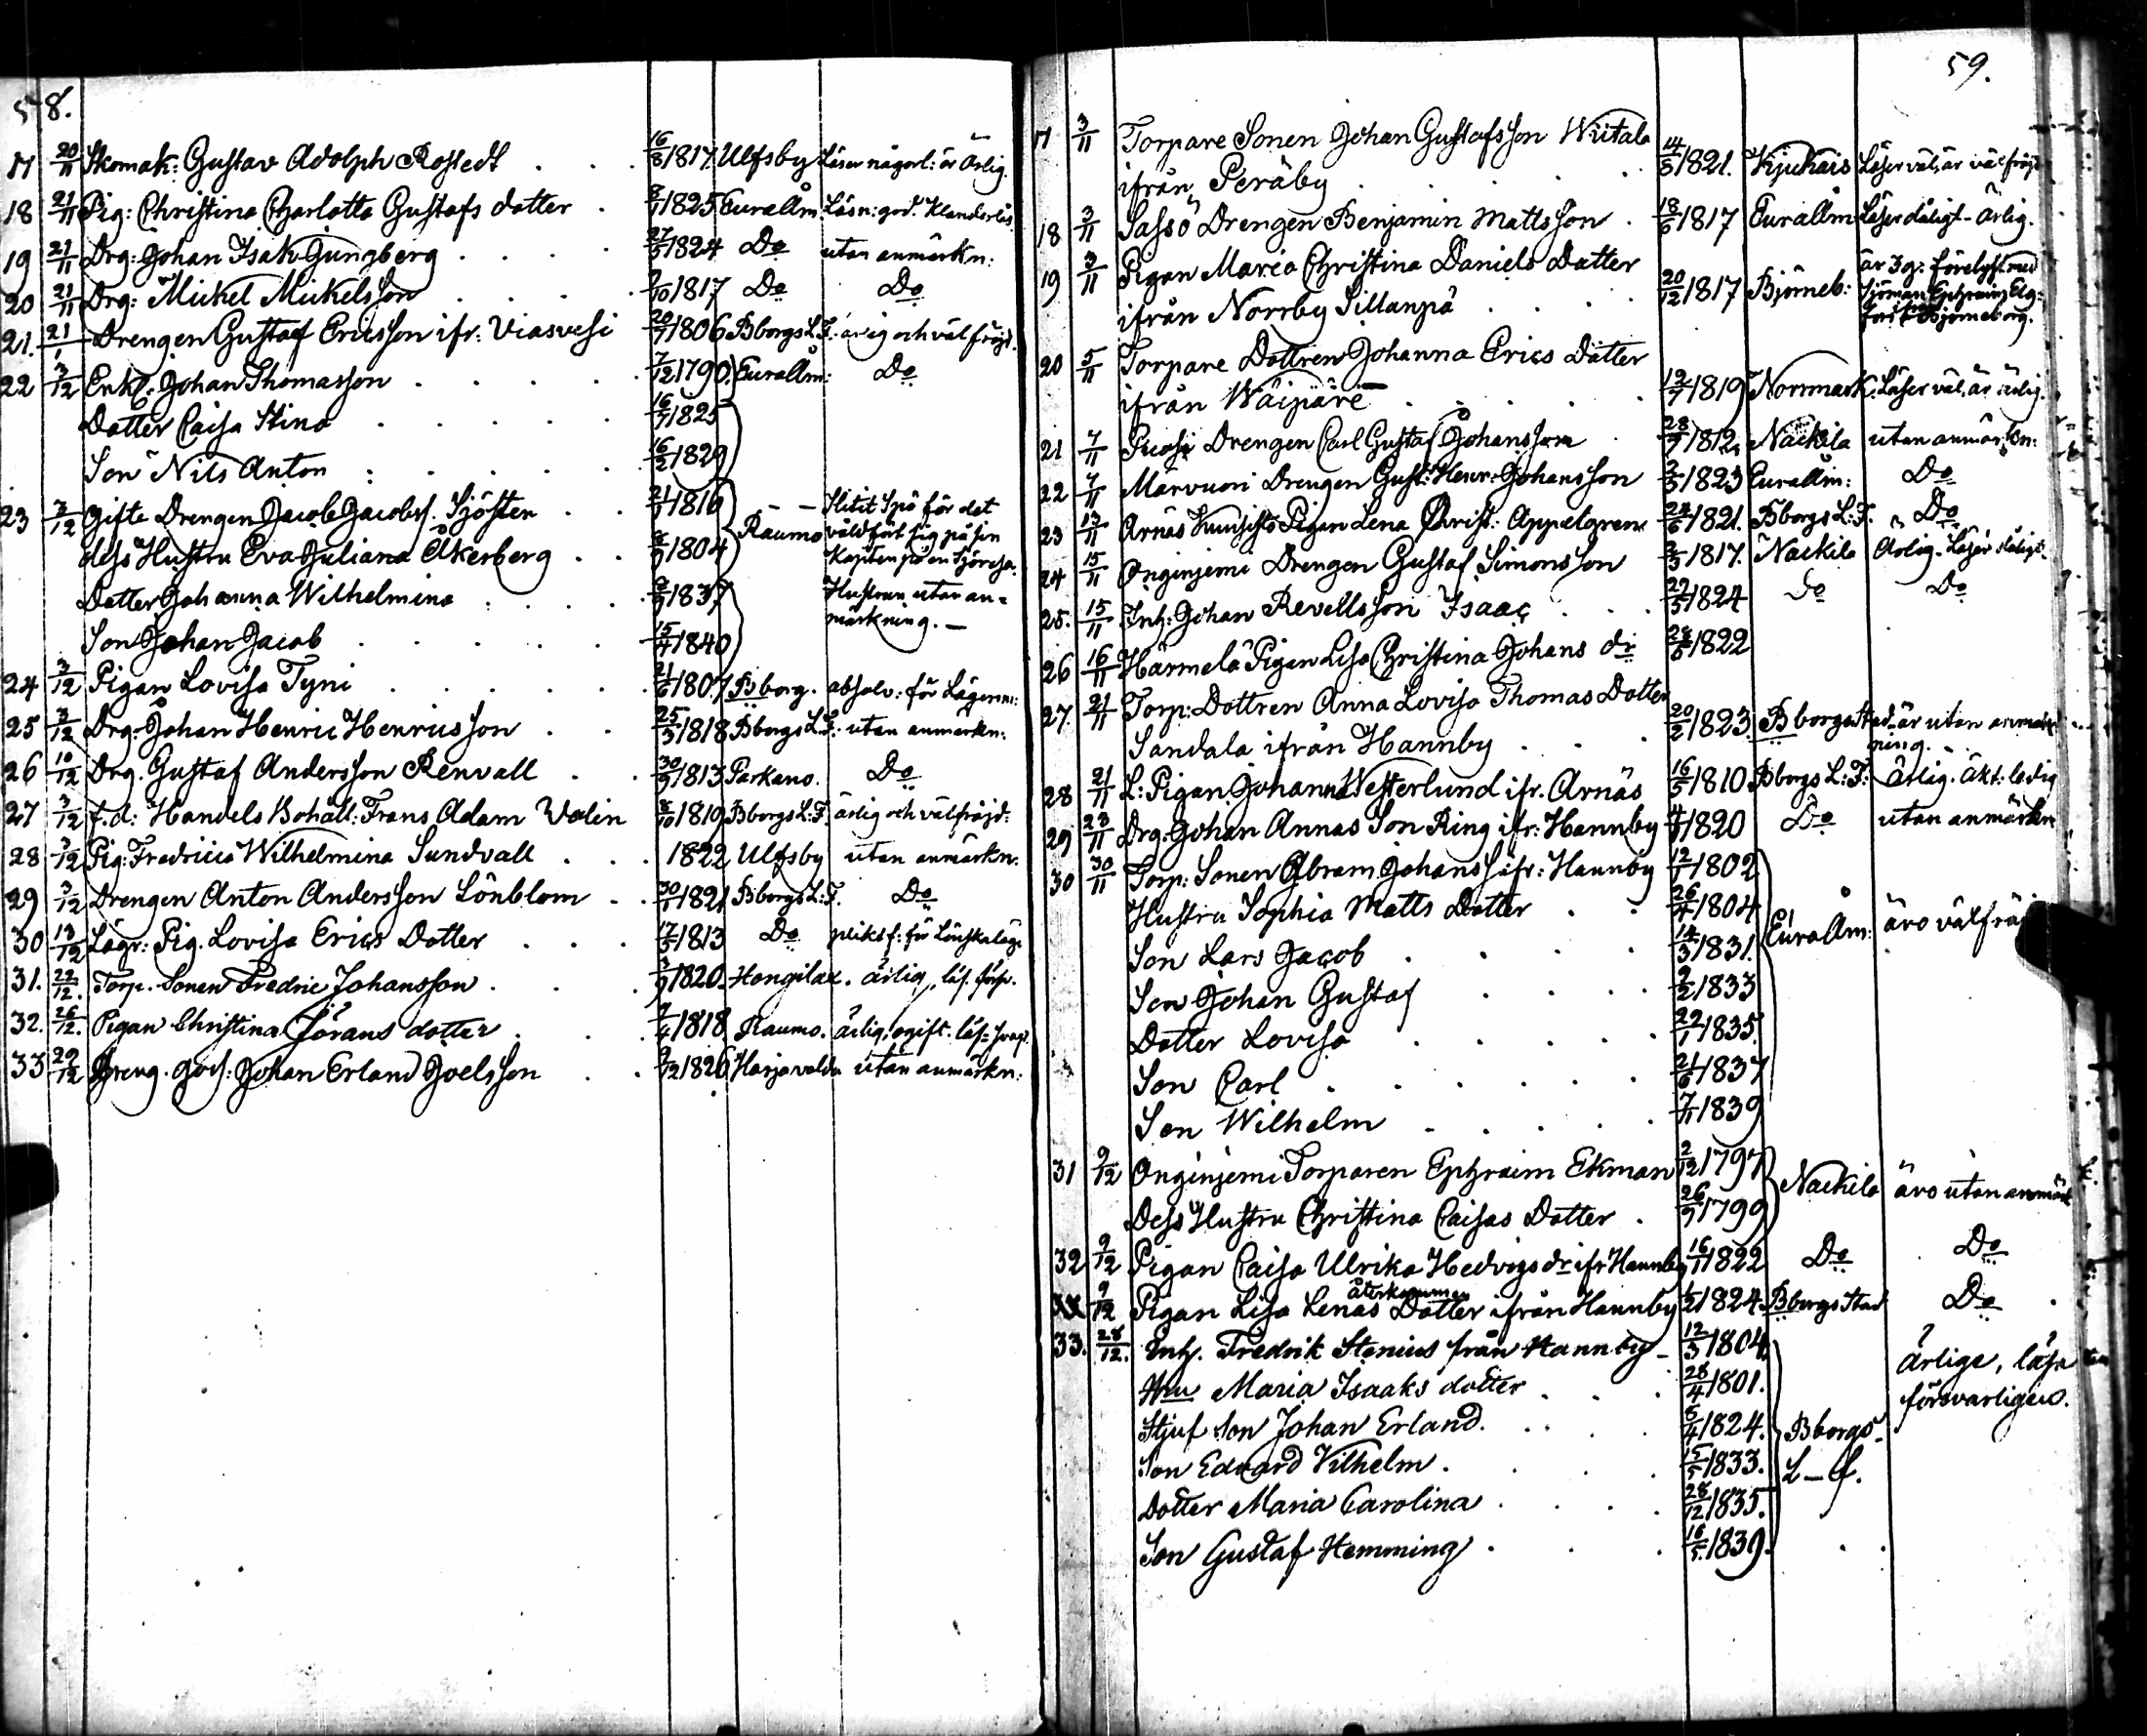 58.
17 20/11 Skomak: Gustav Adolph Rostedt 16/8 1817. Ulfsby Läser någorl: är Ärlig.
18 21/11 Pig: Christina Charlotta Gustafs dotter 8/11 1825 Eurallm. Läsn: god. Klanderlös
19 21/11 Drg: Johan Isak Ljungberg 27/5 1824 Do utan anmärkn:
20 21/11 Drg: Mickel Mickelsson 1817 Do Do
21. 21/1 Drengen Gustaf Ericsson ifr: Viasvesi 20/7 1806 Bborgs L: F. ärlig och välfrejd.
22 3/12 Enkl. Johan Thomasson 7/12 1790. Eurallm: Do
Dotter Caisa Stina 16/7 1825
Son Nils Anton 16/2 1829
23 3/12 gifte Drengen Jacob Jacobss. Sjösten 1816 Slitit Spö för det
dess Hustru Eva Juliana Åkerberg 1804 Raumo våldfört sig på sin
Kapiten på en Sjöresa.
Dotter Johanna Wilhelmina 1837 Hustrun utan an-
märkning. —
Son Johan Jacob 15/4 1840
24 3/12 Pigan Lovisa Tyni 21/6 1807 Bborg. absolv: för Lägersm:
25 3/12 Drg: Johan Henric Henricsson 25/3 1818 Bborgs L: F. utan anmärkn:
26 10/12 Drg. Gustaf Andersson Renvall 30/9 1813 Parkano. Do
27 3/12 f.d: Handels Bohåll: Frans Adam Valin 8/10 1819 Bborgs L: F. ärlig och välfräjd:
28 3/12 Pig: Fredrica Wilhelmina Sundvall 1822 Ulfsby utan anmärkn.
29 3/12 Drengen Anton Andersson Lönblom 30/11 1821 Bborgs L: F. Do
30 13/12 Lägr: Pig. Lovisa Erics Dotter 17/5 1813 Do pliktf: för Lönskaläge
31. 22/12. Torp. Sonen Fredric Johansson 3/9 1820. Hongilax. ärlig, läs. förs.
32. 26/12. Pigan Christina Jörans dotter 7/4 1818 Raumo. ärlig, ogift. läs: svagt.
33 29/12 Dreng. Johan Erland Joelsson 9/12 1826 Harjavalda utan anmärkn:
59.
17 3/11 Torpare Sonen Johan Gustafsson Wiitala
ifrån Peräby 14/5 1821. Kjukais Läser väl, är välfräjd
18 3/11 Sassö Drengen Benjamin Mattsson 18/6 1817 Eurallm Läser dåligt - ärlig.
19 3/11 Pigan Maria Christina Daniels Dotter är 3 g: förelyst med
ifrån Norrby Sillanpä 20/12 1817 Björneb: Sjöman Ephraim
Björneborg.
20 5/11 Torpare Dottren Johanna Erics Dotter
ifrån Wäipäre 12/7 1819 Norrmark. Läser väl, är ärlig.
21 7/11 Drengen Carl Gustaf Johansson 28/7 1812. Nackila utan anmärkn:
22 7/11 Marvuori Drengen Gust: Henr: Johansson 2/5 1823 Eurallm: Do
23 13/11 Arnäs Pigan Lena Christ: Appelgren 24/6 1821. Bborgs L: F. Do
24 15/11 Onginjemi Drengen Gustaf Simonsson 1817. Nackila Ärlig. Läser dåligt.
25. 15/11 Inh: Johan Revellsson Isaac 22/5 1824 Do Do
26 16/11 Härmelä Pigan Lisa Christina Johans dr 28/5 1822
27. 21/11 Torp: Dottren Anna Lovisa Thomas Dotter
Sandala ifrån Hannby 20/2 1823. Bborgs Stad är utan anmärk
ning.
28 21/11 L: Pigan Johanna Westerlund ifr. Arnäs 16/5 1810 Bborgs L: F: Ärlig. äkt: ledig
29 23/11 Drg: Johan Annas Son Ring ifr: Hannby 1820 Do utan anmärkn
30 30/11 Torp: Sonen Abram Johanss ifr: Hannby 12/1 1802
Hustru Sophia Matts Dotter 26/4 1804
Son Lars Jacob 14/3 1831. Eura Am: äro välfräj
Son Johan Gustaf 2/2 1833
Dotter Lovisa 22/1 1835.
Son Carl 21/6 1837
Son Wilhelm 7/11 1839
31 9/12 Onginjemi Torparen Ephraim Ekman 2/12 1797 Nackila äro utan anmärk
Dess Hustru Christina Caisas Dotter 26/7 1799
32 9/12 Pigan Caisa Ulrika Hedvigs dr ifr Hannby 16/1 1822 Do Do
återkommen
9/12 Pigan Lisa Lenas Dotter ifrån Hannby 1824. Bborgs Stad Do
33. 28/12. Inh. Fredrik Stenius från Hannby 12/3 1804. ärliga, läsa
Hu Maria Isaaks dotter 28/4 1801. försvarligen.
Stjuf son Johan Erland. 6/4 1824. Bborgs
Son Edvard Vilhelm. 15/5 1833. L—f.
Dotter Maria Carolina 28/12 1835.
Son Gustaf Hemming 16/5. 1839.